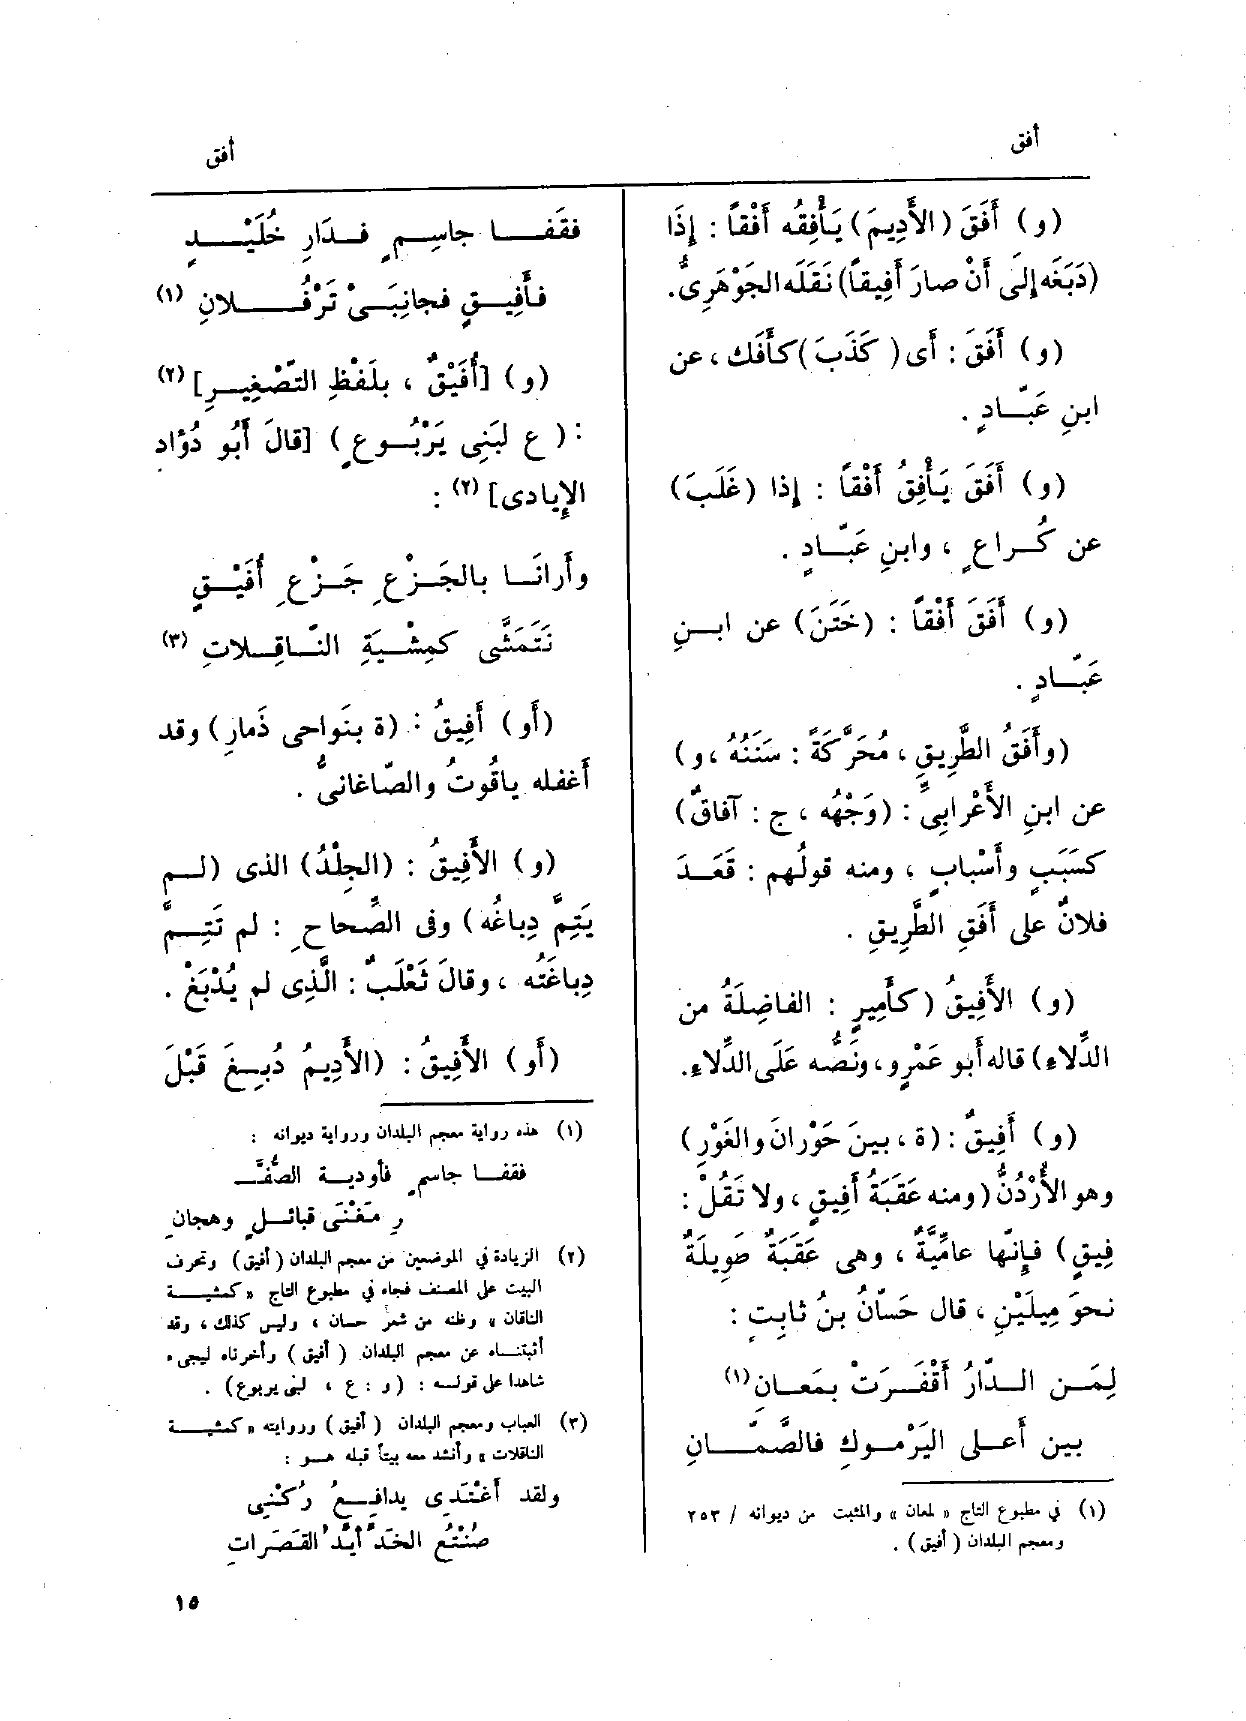 أفق
أفق
(و) أَفَقَ (الأَدِيمَ) يَأْفِقُه أَفْقاً : إِذَا
(دَبَغَه إِلَى أَنْ صارَ أَفِيقاً) نَقَلَه الجَوْهَرِىُّ.
(و) أَفَقَ : أَى (كَذَبَ) كأَفَك ، عن
ابنِ عَبّادٍ .
(و) أَفَقَ يَأْفِقُ أَفْقاً : إِذا (غَلَبَ)
عن كُراعٍ ، وابنِ عَبّادٍ .
(و) أَفَقَ أَفْقاً : (خَتَنَ) عن ابنِ
عَبّادٍ .
(وأَفَقُ الطَّرِيقِ ، مُحَرَّكَةً : سَنَنُهُ ، و)
عن ابنِ الأَعْرابِىِّ : (وَجْهُه ، ج : آفاقٌ)
كسَبَبٍ وأَسْبابٍ ، ومنه قولُهم : قَعَدَ
فلانٌ على أَفَقِ الطَّرِيقِ .
(و) الأَفِيقُ (كأَمِيرٍ : الفاضِلَةُ من
الدِّلاءِ) قاله أَبو عَمْرٍو ، ونَصُّه عَلَى الدِّلاءِ.
(و) أَفِيقٌ : (ة ، بينَ حَوْرانَ والغَوْرِ)
وهو الأُرْدُنُّ (ومنه عَقَبَةُ أَفِيقٍ ، ولا تَقُلْ :
فِيقٍ) فإِنّها عامِّيَّةٌ ، وهى عَقَبَةٌ طَوِيلَةٌ
نحوَ مِيلَيْنِ ، قال حَسّانُ بنُ ثابِتٍ :
لِمَنِ الدّارُ أَقْفَرَتْ بمَعانِ (١)
بين أَعلى اليَرْموكِ فالصَّمّانِ
(١) في مطبوع التاج « لمعان » والمثبت من ديوانه / ٢٥٣
ومعجم البلدان (أفيق) .
فقَفا جاسِمٍ فدَارِ خُلَيْدٍ
فأَفِيقٍ فجانِبَىْ تَرْفُلانِ (١)
(و) [أُفَيْقٌ ، بلَفْظِ التَّصْغِيرِ] (٢)
: (ع لبَنِى يَرْبُوعٍ) [قالَ أَبُو دُوَّاد
الإِيادى] (٢) :
وأَرانَا بالجَزْعِ جَزْعِ أُفَيْقٍ
نَتَمَشَّى كمِشْيَةِ النّاقِلاتِ (٣)
(أَو) أَفِيقُ : (ة بنَواحى ذَمارِ) وقد
أَغفله ياقُوتُ والصّاغانىُّ .
(و) الأَفِيقُ : (الجِلْدُ) الذى (لم
يَتِمَّ دِباغُه) وفى الصِّحاحِ : لم تَتِمَّ
دِباغَتُه ، وقالَ ثَعْلَبٌ : الَّذِى لم يُدْبَغْ .
(أَو) الأَفِيقُ : (الأَدِيمُ دُبِغَ قَبْلَ
(١) هذه رواية معجم البلدان ورواية ديوانه :
فقفا جاسمٍ فأَودية الصُّفَّـ
رِ مَغْنَى قبائلٍ وهجانِ
(٢) الزيادة في الموضعين من معجم البلدان (أفيق) وتحرف
البيت على المصنف فجاء في مطبوع التاج « كمشية
الناقان » وظنه من شعر حسان ، وليس كذلك ، وقد
أثبتناه عن معجم البلدان (أفيق) وأخرناه ليجىء
شاهدا على قوله : (و : ع ، لبنى يربوع) .
(٣) العباب ومعجم البلدان (أفيق) وروايته « كمشية
الناقلات » وأنشد معه بيتاً قبله هو :
ولقد أَغْتَدِى يدافِعُ رُكْنِى
صُنْتُع الخَدِّ أَيِّدُ القَصَراتِ
١٥